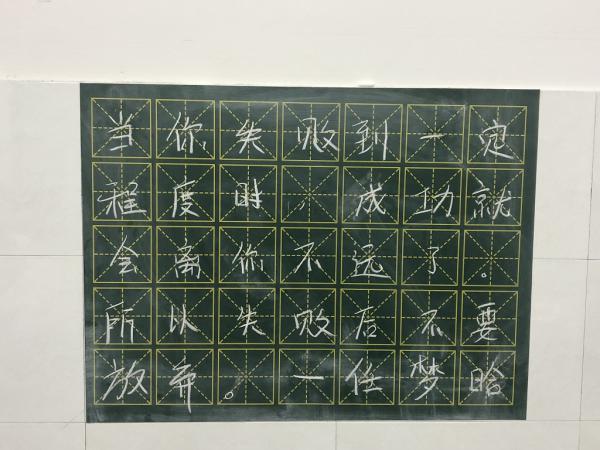 当你失败到一定
程度时，成功就
会离你不远了。
所以失败后不要
放弃。一任梦晗